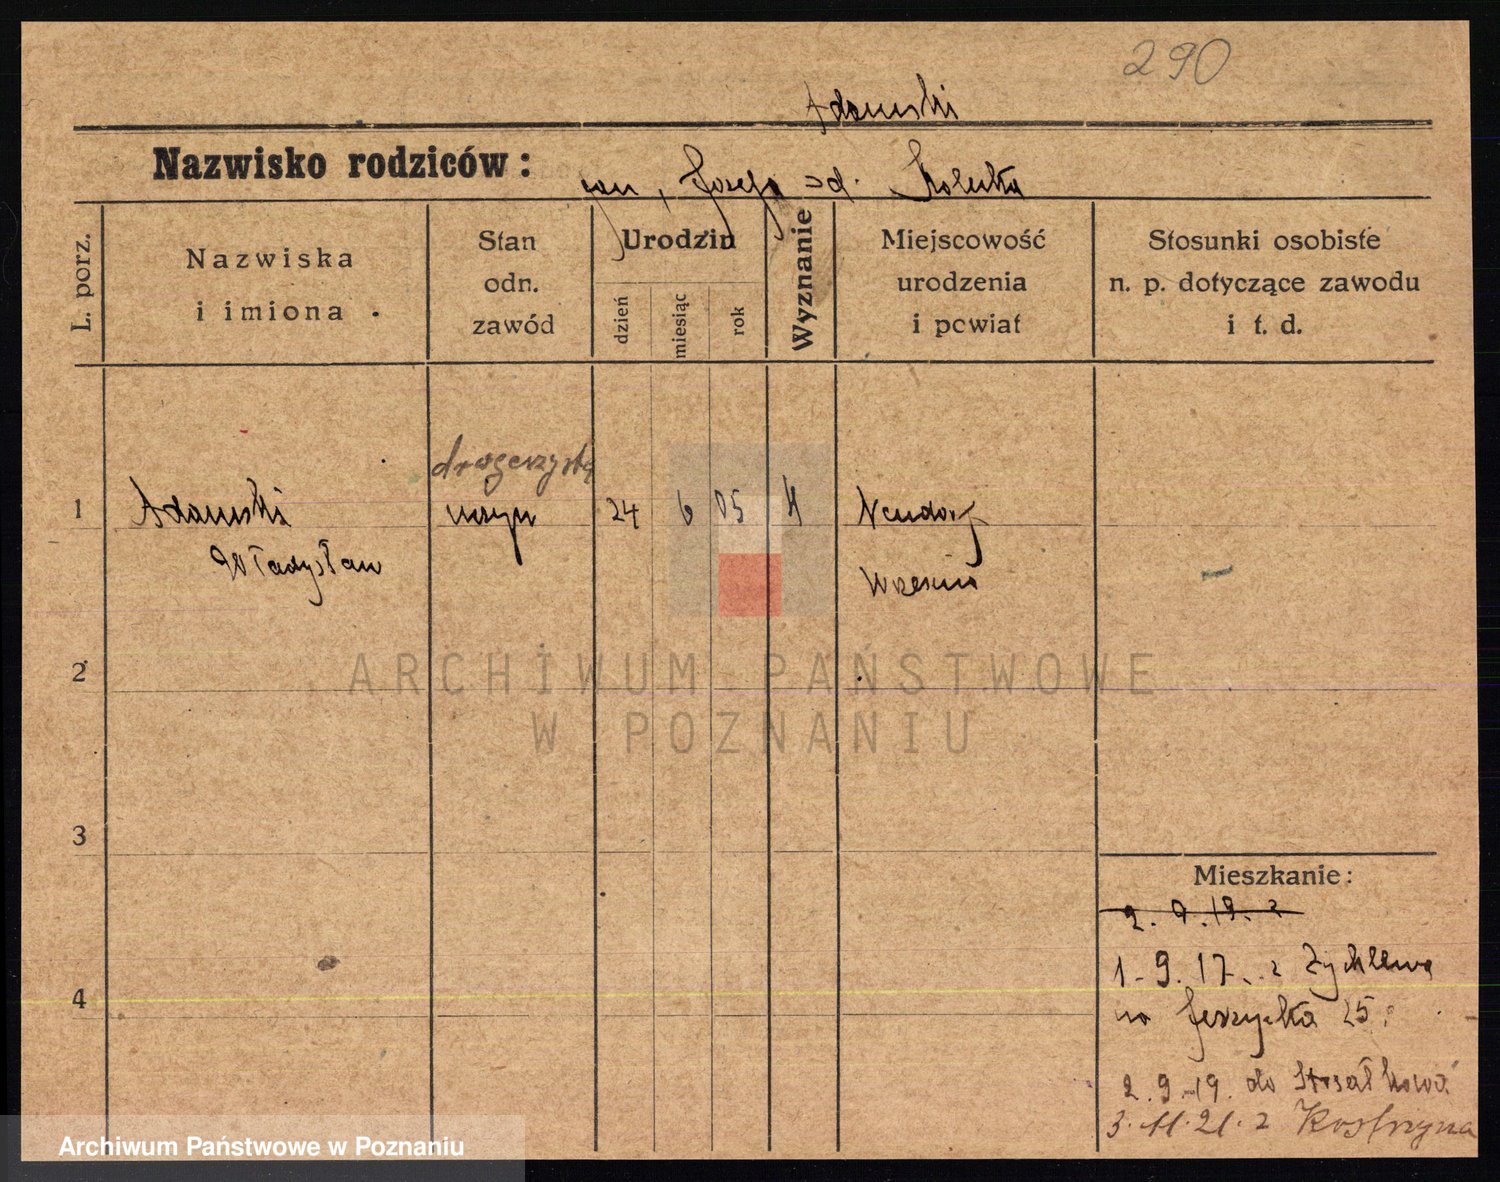 290
Adamski
Nazwisko rodziców: Jan, Józefa
L. porz.
Nazwiska
i imiona
Stan
odn.
zawód
Urodzin
dzień
miesiąc
rok
Wyznanie
Miejscowość
urodzenia
i powiat
Stosunki osobiste
n. p. dotyczące zawodu
i t. d.
drogerzysta
1 Adamski 24 6 05 Neudorf
Władysław
Września
2
ARCHIWUM PAŃSTWOWE
W POZNANIU
3
Mieszkanie:
2. 9. 19. z
1. 9. 17. z Żychlewa
na Jeżycka 25.
4
2. 9. 19. do Strzałkowa
3. 11. 21. z Kostrzyna
Archiwum Państwowe w Poznaniu